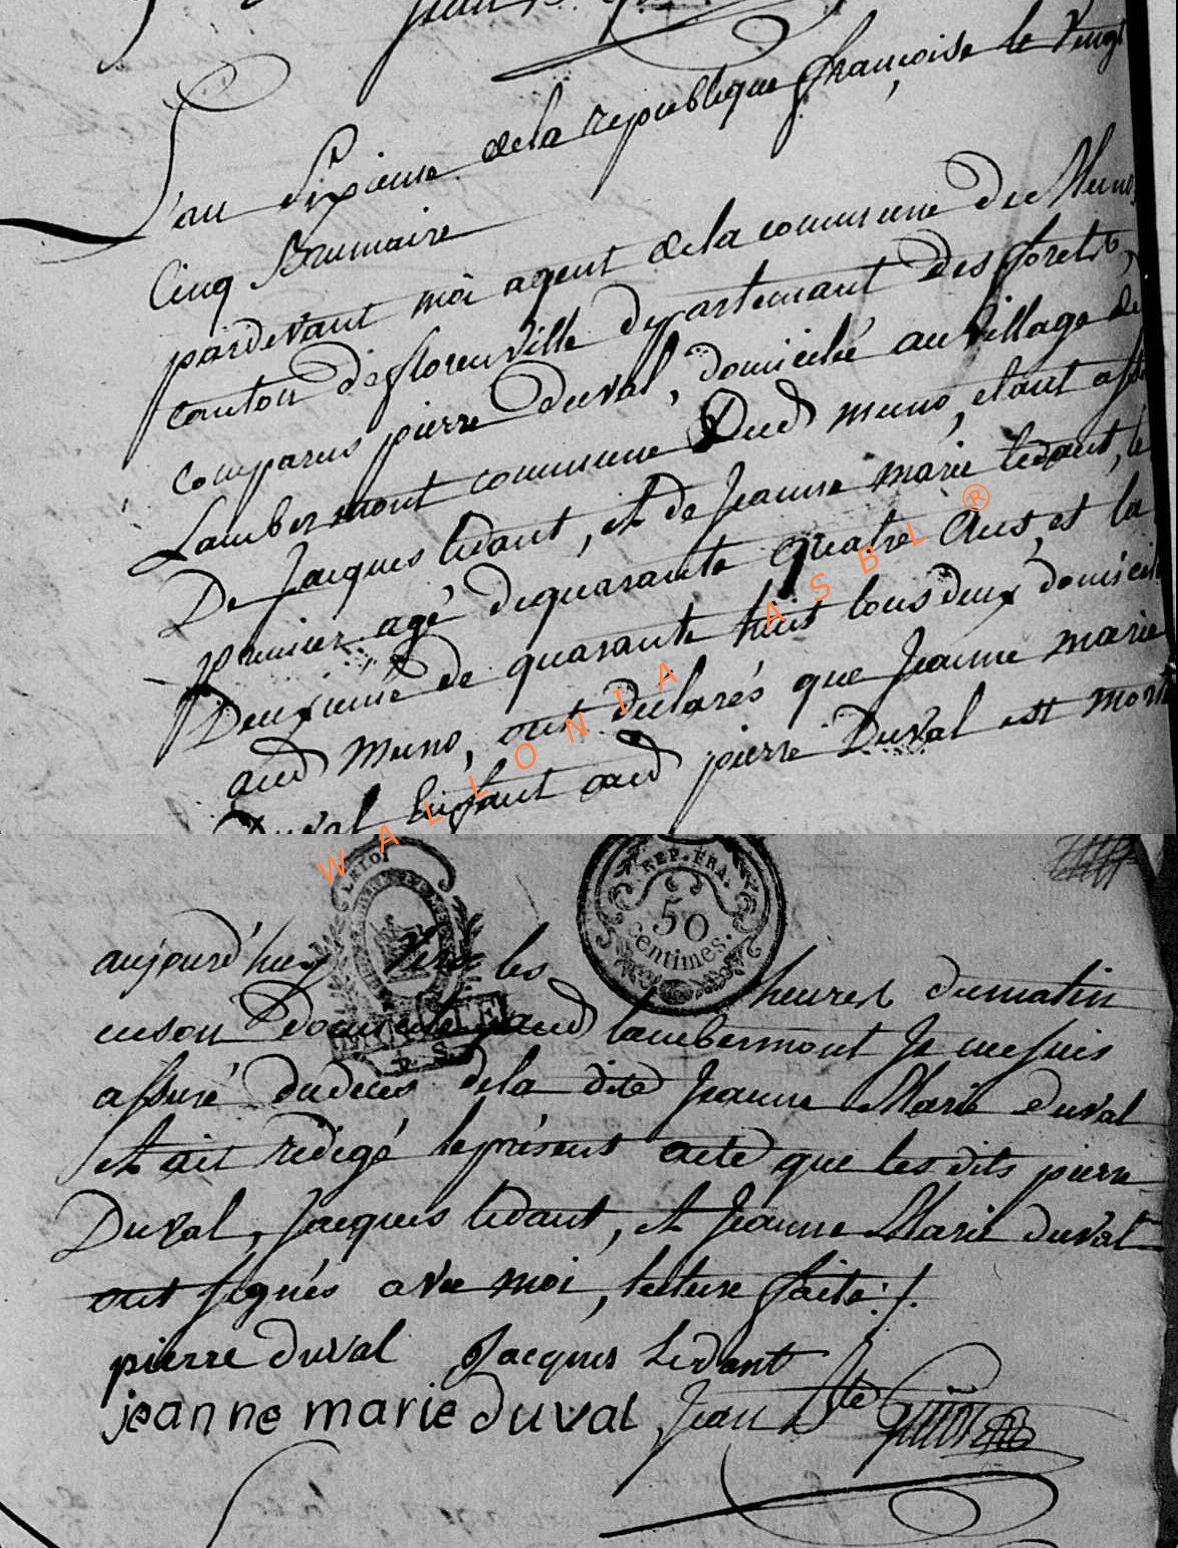 L'an Sixieme de la republique françoise le Vingt
Cinq Brumaire
pardevant moi agent de la commune de Muno,
canton de florenville departemant des forets,
comparus pierre Duval, domicilié au village de
Lambermont commune Dud muno, etant assi
De Jacques lidant, et de Jeanne marie lidant, le
premier agé de quarante quatre Ans, et la
Deuxieme de quarante huit tous deux domicili
aud muno, ont declarés que Jeanne marie
Duval Enfant aud pierre Duval est morte
WALLONIA ASBL ®
LA LOI
REP. FRA.
50
centimes.
aujourd'huy Vers les heures du matin
en son Domicile aud lambermont Je me suis
assuré du deces de la dite Jeanne Marie duval
et ait redigé le présent acte que les dits pierre
Duval, Jacques lidant, et Jeanne Marie duval
ont signés avec moi, lecture faite ./.
pierre duval Jacques Lidant
jeanne marie duval Jean Bte